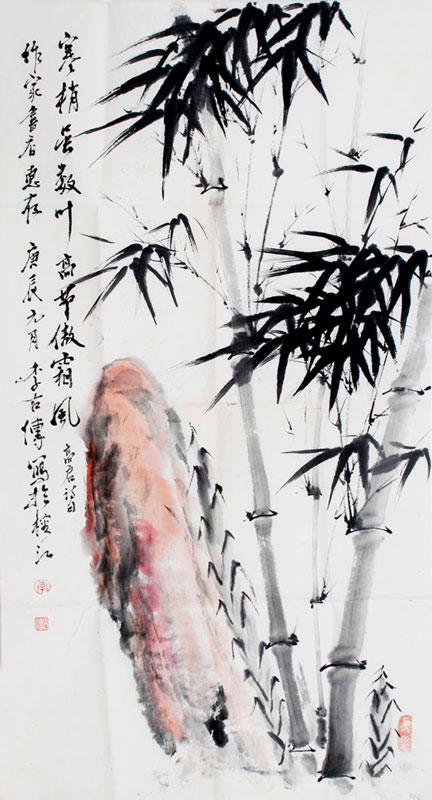 寒梢虽数叶 高节傲霜风 高启诗曰
作家書店惠存 庚辰元月 李古傳寫於榕江